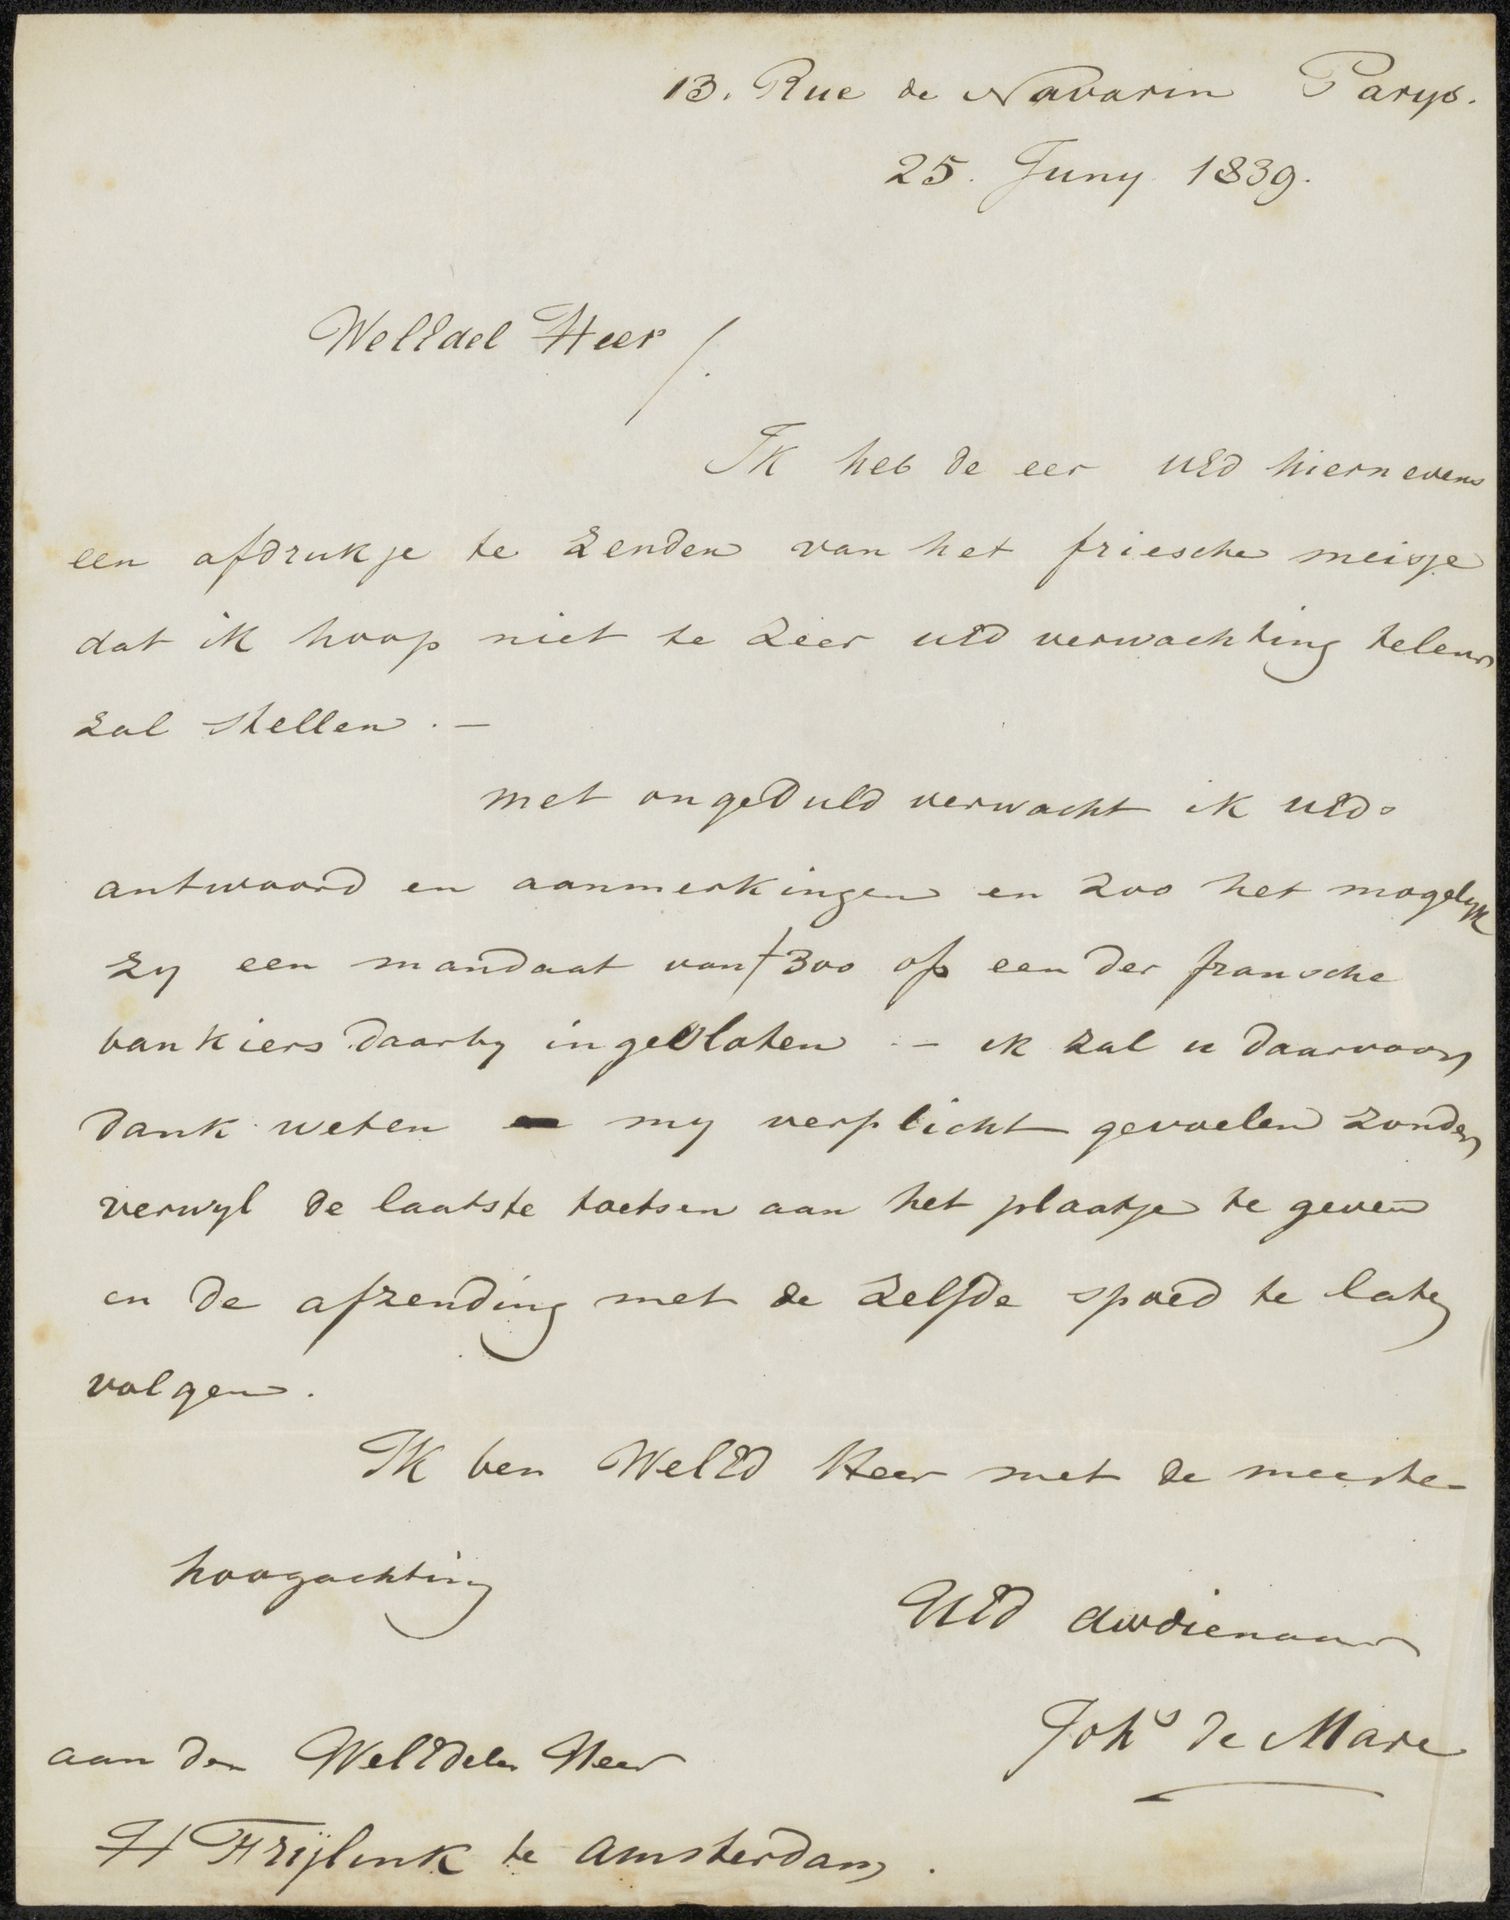 13. Rue de Navarin Parys.
25. Juny 1839.
WelEdel Heer /.
Ik heb de eer UEd hiernevens
een afdrukje te zenden van het friesche meisje
dat ik hoop niet te zeer UEd verwachting teleur
zal stellen. —
met ongeduld verwacht ik UEds
antwoord en aanmerkingen en zoo het mogelyk
zy een mandaat van f 300 op een der fransche
bankiers daarby ingesloten. — ik zal u daarvoor
dank weten en my verplicht gevoelen zonder
verwyl de laatste toetsen aan het plaatje te geven
en de afzending met de zelfde spoed te laten
volgen.
Ik ben WelEd Heer met de meeste
hoogachting
UEd dwdienaar
Johs de Mare
aan den WelEdelen Heer
H Frijlink te Amsterdam.